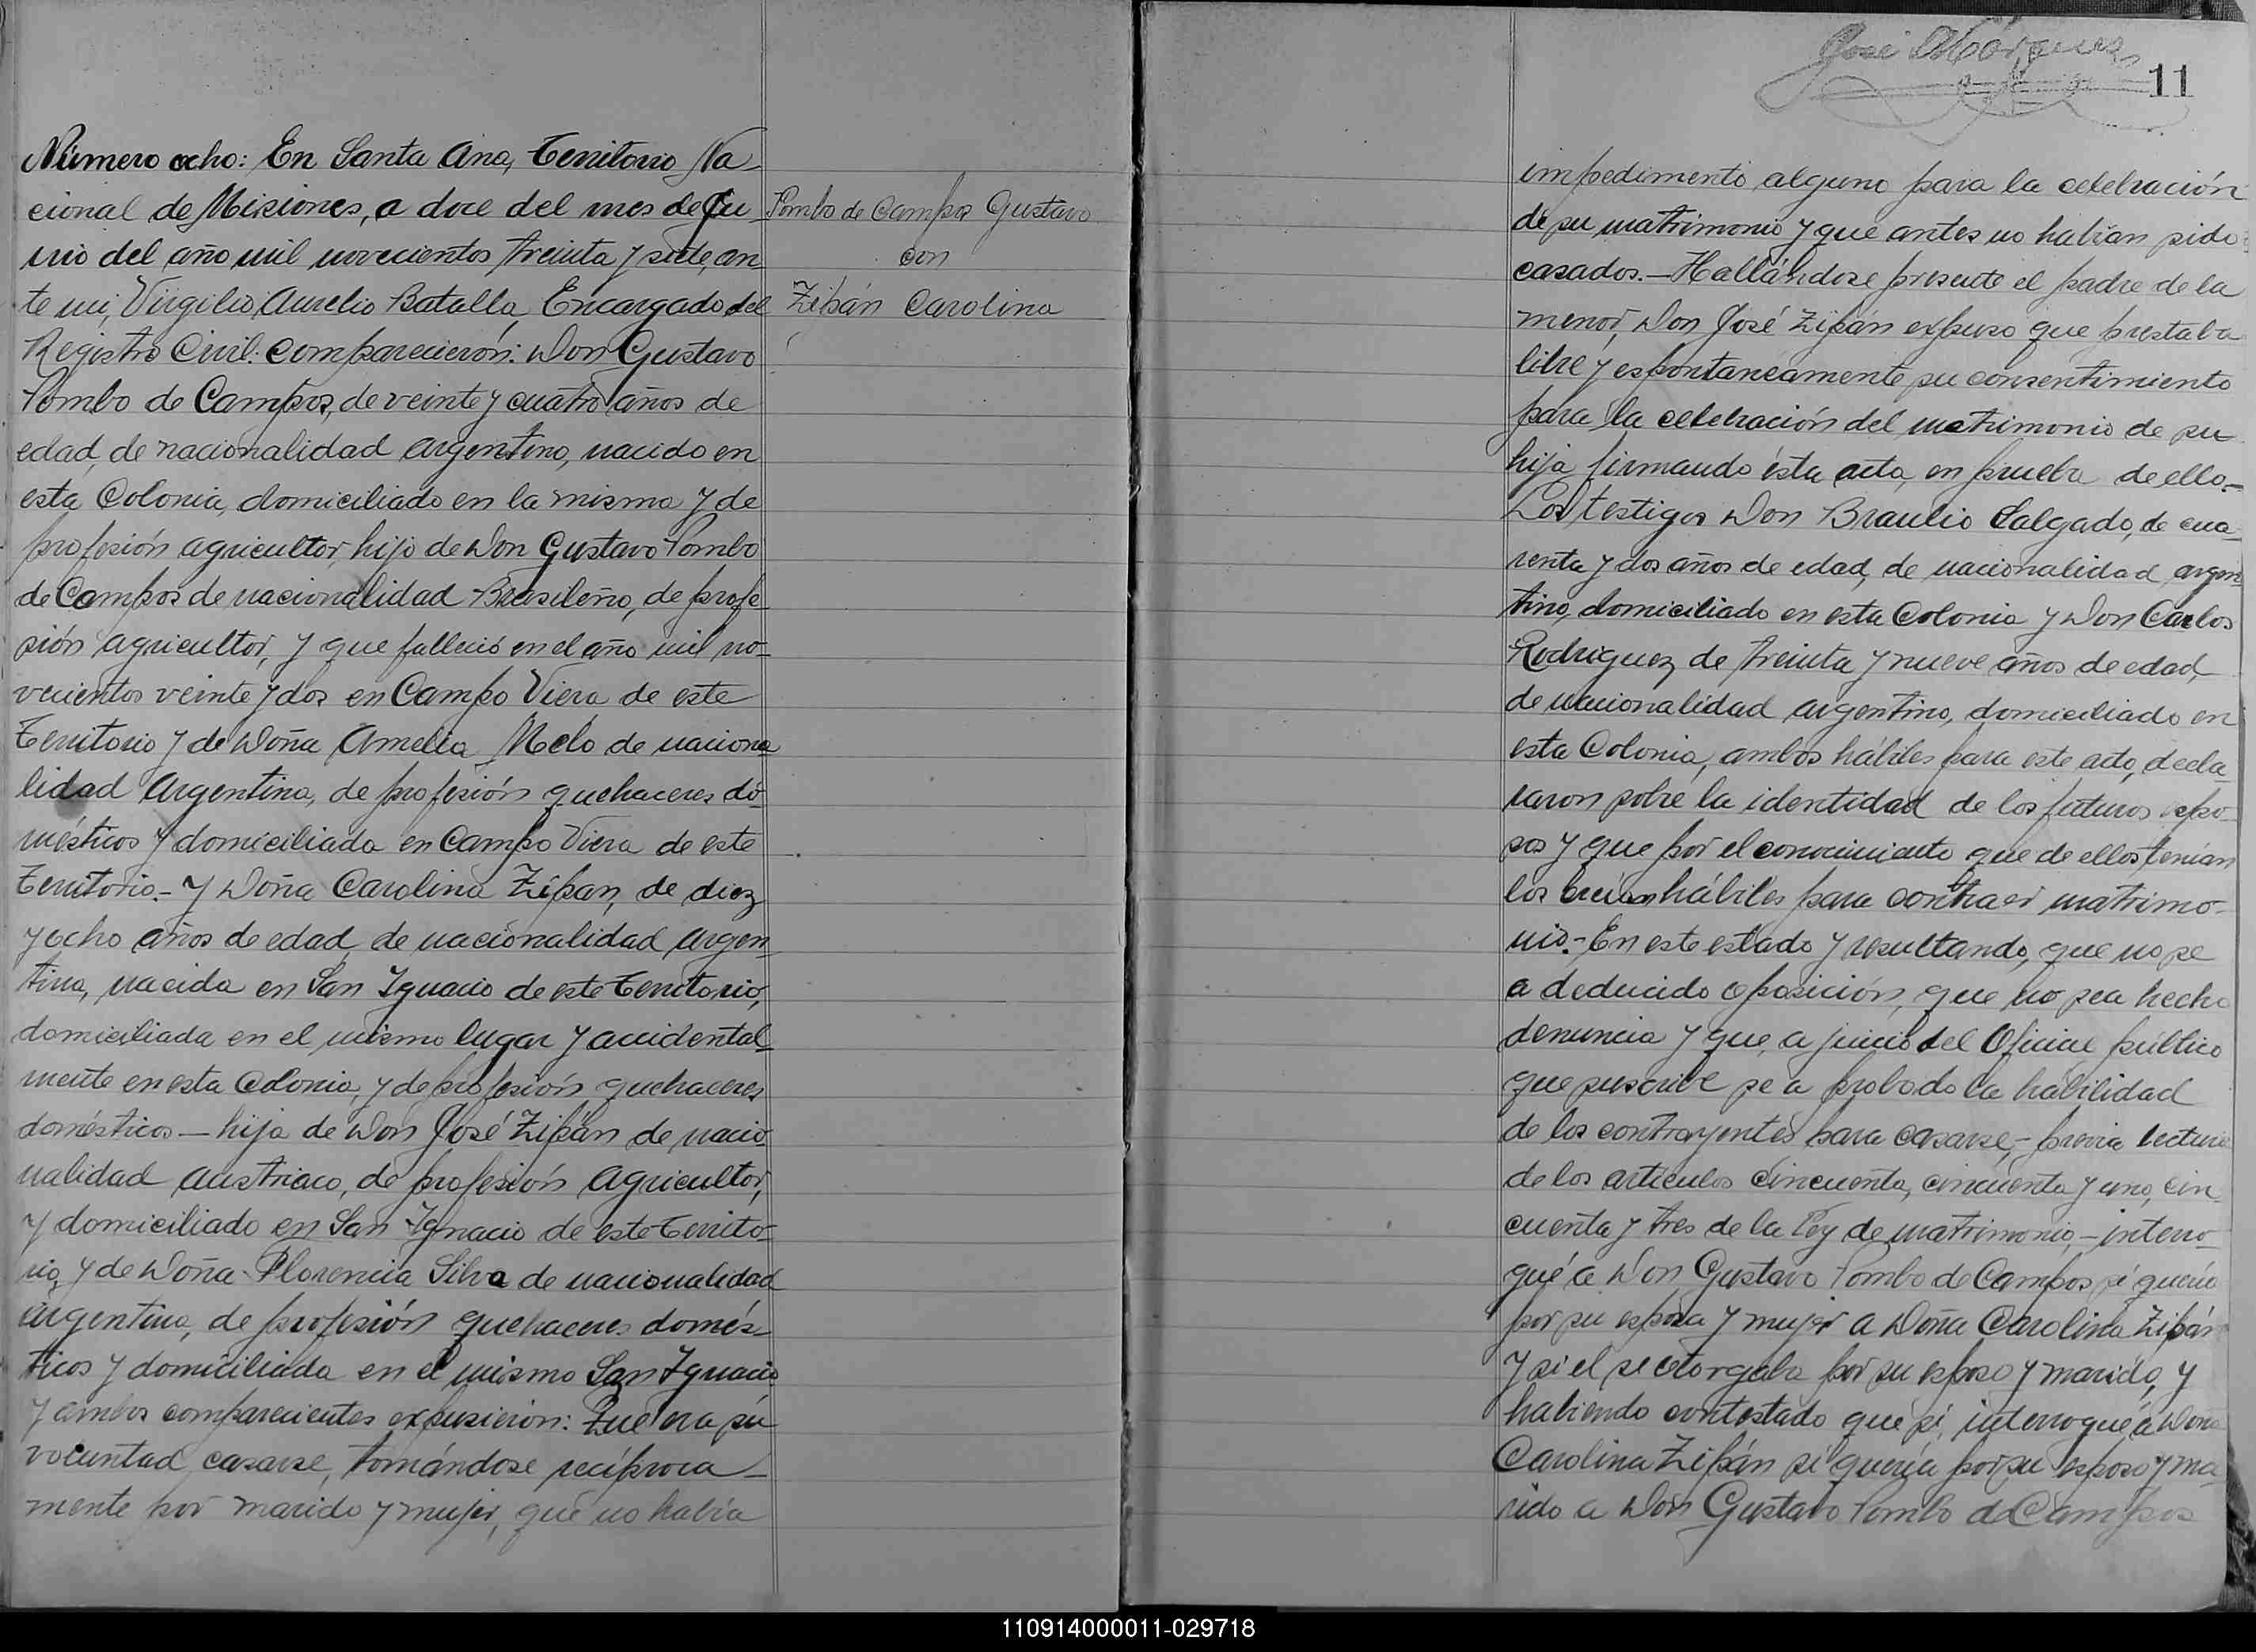 Número ocho: En Santa Ana, Territorio Na-
cional de Misiones, a doce del mes de Ju-
nio del año mil novecientos treinta y siete, an
te mi, Virgilio Aurelio Batalla, Encargado del
Registro Civil: comparecierón: Don Gustavo
Pombo de Campos, de veinte y cuatro años de
edad, de nacionalidad argentino, nacido en
esta Colonia, domiciliado en la misma y de
profesión agricultor, hijo de Don Gustavo Pombo
de Campos de nacionalidad Brasileño, de profe-
sión agricultor, y que falleció en el año mil no-
vecientos veinte y dos en Campo Viera de este
Territorio y de Doña Amelia Melo de naciona
lidad Argentina, de profesión quehaceres do-
mésticos y domiciliada en Campo Viera de este
Territorio.- Y Doña Carolina Zipan, de diez
y ocho años de edad, de nacionalidad argen-
tina, nacida en San Ignacio de este Territorio,
domiciliada en el mismo lugar y accidental-
mente en esta Colonia, y de profesión quehaceres
domésticos — hija de Don José Zipán de nacio-
nalidad austriaco, de profesión agricultor,
y domiciliado en San Ignacio de este Territo-
rio, y de Doña Florencia Silva de nacionalidad
argentina, de profesión quehaceres domés-
ticos y domiciliada en el mismo San Ignacio
y ambos comparecientes expusierón: Que era su
voluntad casarse, tomándose recíproca-
mente por marido y mujer, que no había
Pombo de Campos Gustavo
con
Zipán Carolina
José Márquez
11
impedimento alguno para la celebración
de su matrimonio y que antes no habían sido
casados.— Hallándose presente el padre de la
menor, Don José Zipán expuso que prestaba
libre y espontaneamente su consentimiento
para la celebración del matrimonio de su
hija firmando ésta acta, en prueba de ello.-
Los testigos Don Braulio Salgado, de cua-
renta y dos años de edad, de nacionalidad argen
tino, domiciliado en esta Colonia y Don Carlos
Rodriguez de treinta y nueve años de edad,
de nacionalidad argentino, domiciliado en
esta Colonia, ambos hábiles para este acto, decla
raron sobre la identidad de los futuros espo-
sos y que por el conocimiento que de ellos tenían
los creían hábiles para contraer matrimo-
nio.- En este estado y resultando, que no se
a deducido oposición, que no sea hecho
denuncia y que, a juicio del Oficial público
que suscribe se a probado la habilidad
de los contrayentes para casarse,- previa lectura
de los artículos cincuenta, cincuenta y uno, cin
cuenta y tres de la Ley de matrimonio,- interro-
gué a Don Gustavo Pombo de Campos si quería
por su esposa y mujer a Doña Carolina Zipán
y si el se otorgaba por su esposo y marido, y
habiendo contestado que si, interrogué a Doña
Carolina Zipán si quería por su esposo y ma
rido a Don Gustavo Pombo de Campos
110914000011-029718